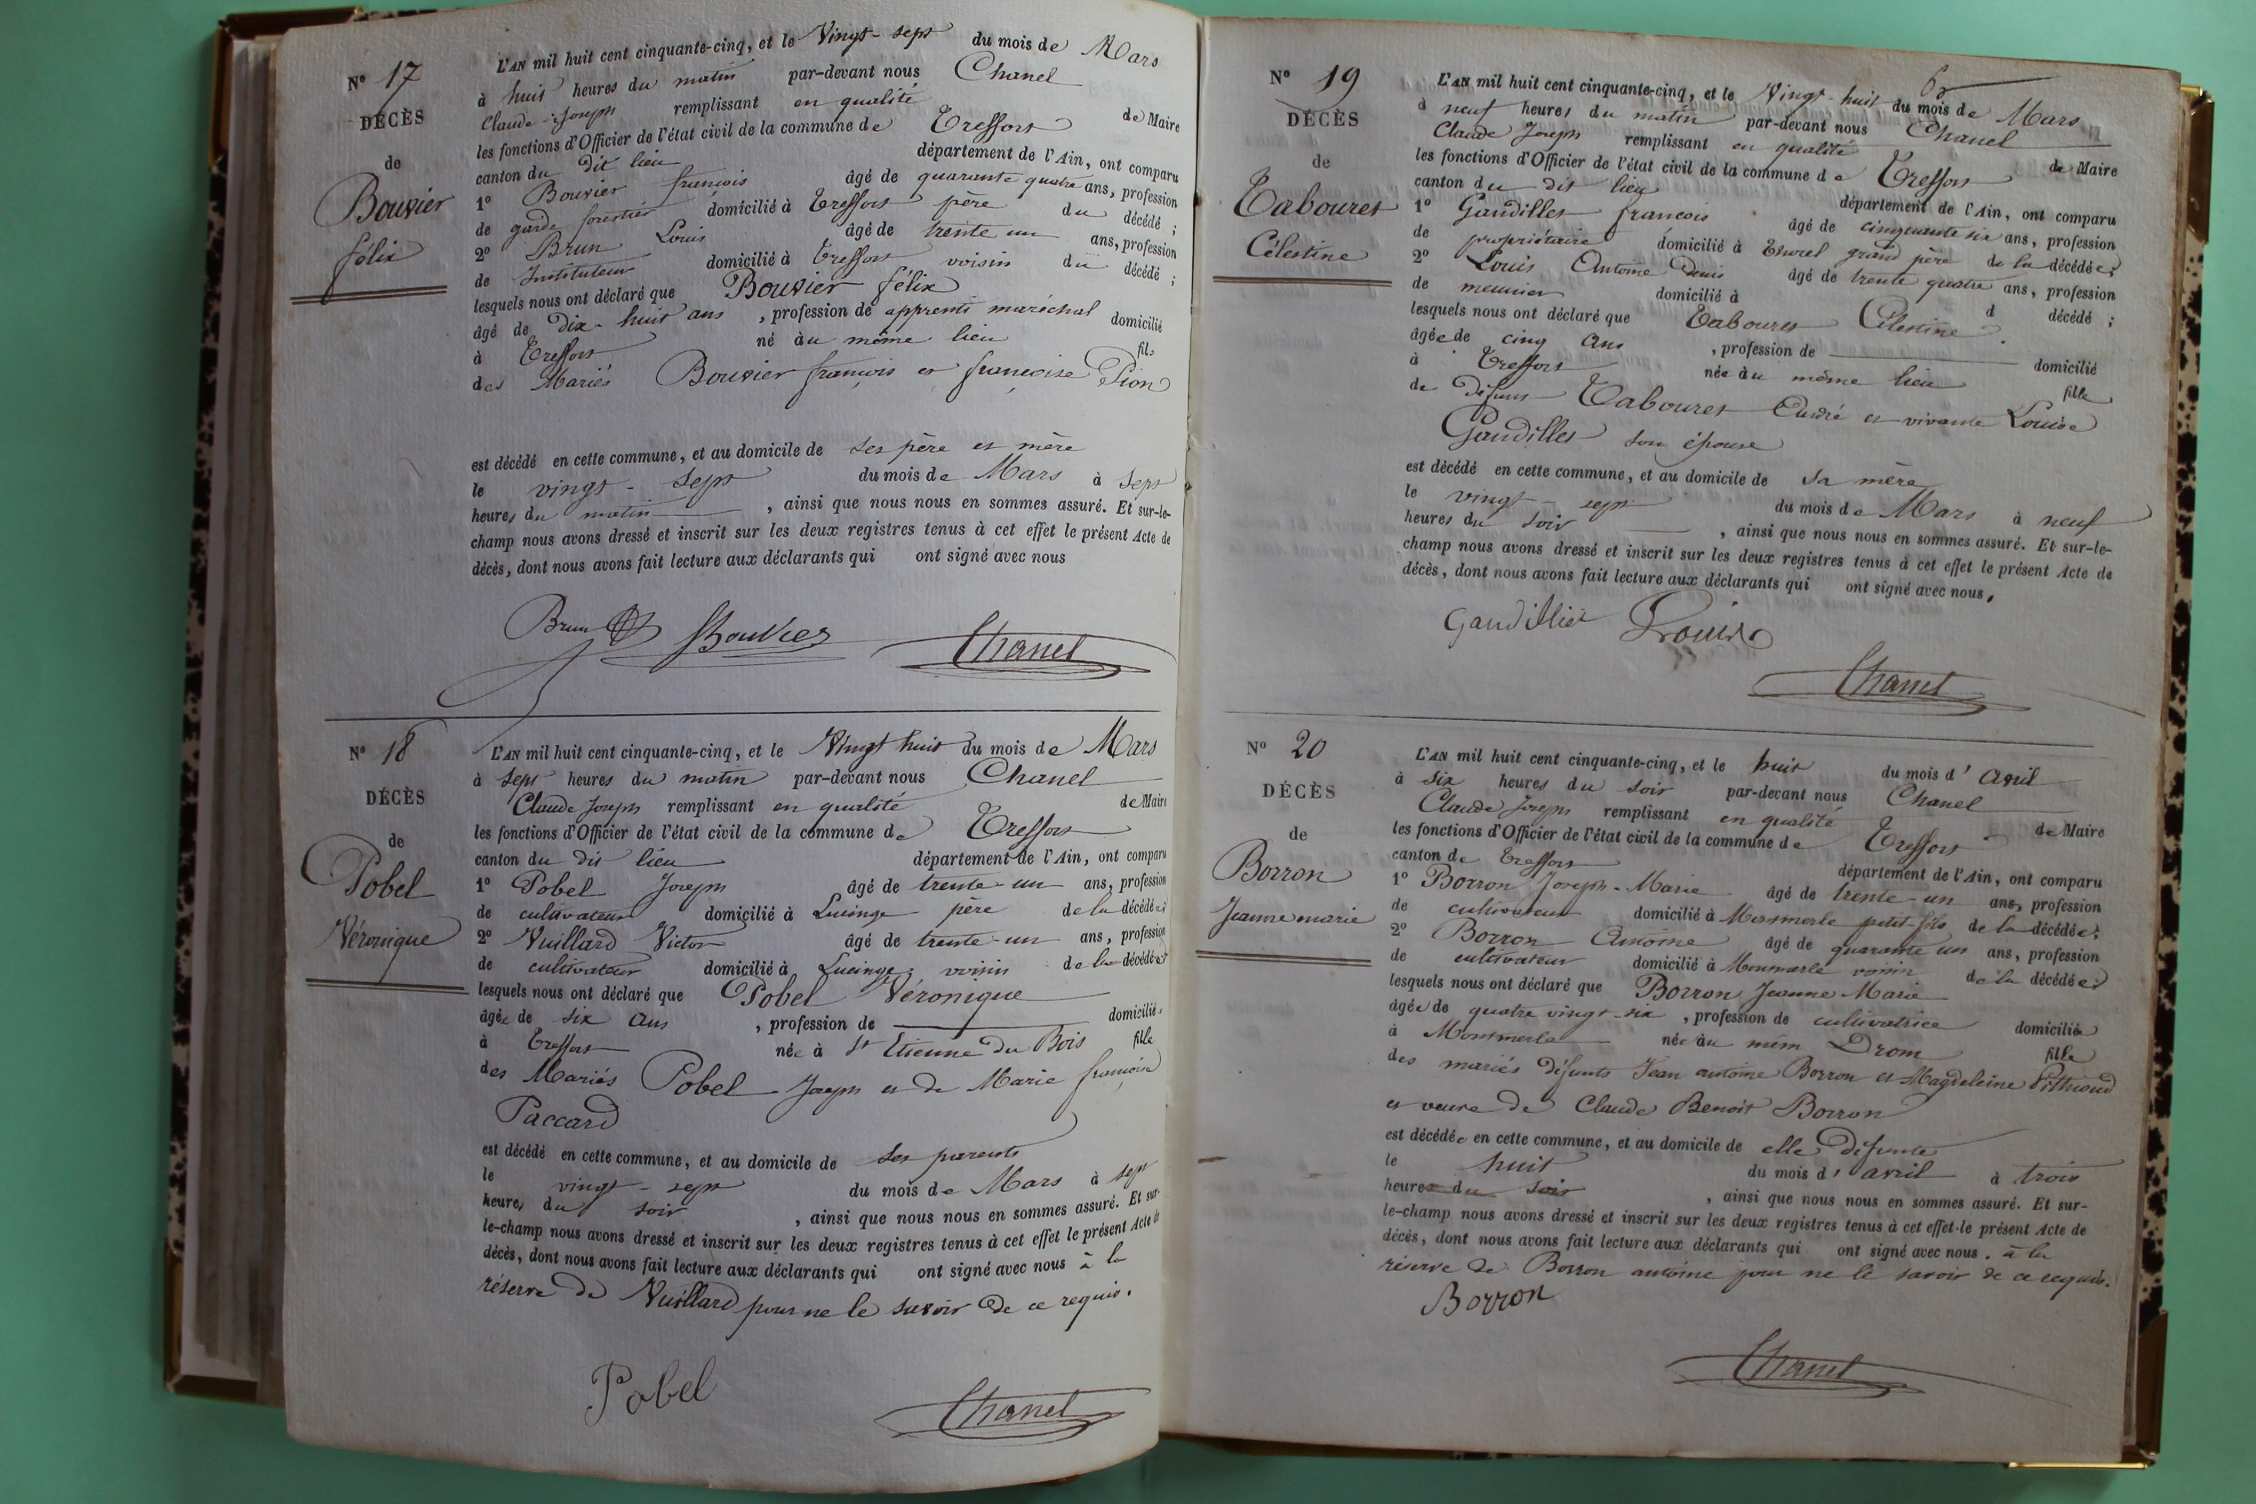 N° 17
DÉCÈS
de
Bouvier
félix
L'AN mil huit cent cinquante-cinq, et le Vingt-sept du mois de Mars
à huit heures du matin par-devant nous Chanel
Claude-Joseph remplissant en qualité de Maire
les fonctions d'Officier de l'état civil de la commune de Treffort
canton du dit lieu département de l'Ain, ont comparu
1° Bouvier françois âgé de quarante quatre ans, profession
de garde forestier domicilié à Treffort père du décédé ;
2° Brun Louis âgé de trente un ans, profession
de Instituteur domicilié à Treffort voisin du décédé ;
lesquels nous ont déclaré que Bouvier félix
âgé de dix-huit ans , profession de apprenti maréchal domicilié
à Treffort né au même lieu fils
des Mariés Bouvier françois et françoise Pion
est décédé en cette commune, et au domicile de ses père et mère
le vingt-sept du mois de Mars à sept
heures du matin , ainsi que nous nous en sommes assuré. Et sur-le-
champ nous avons dressé et inscrit sur les deux registres tenus à cet effet le présent Acte de
décès, dont nous avons fait lecture aux déclarants qui ont signé avec nous
Brun Bouvier Chanel
N° 18
DÉCÈS
de
Pobel
Véronique
L'AN mil huit cent cinquante-cinq, et le Vingt huit du mois de Mars
à sept heures du matin par-devant nous Chanel
Claude Joseph remplissant en qualité de Maire
les fonctions d'Officier de l'état civil de la commune de Treffort
canton du dit lieu département de l'Ain, ont comparu
1° Pobel Joseph âgé de trente-un ans, profession
de cultivateur domicilié à Lucinge père de la décédée
2° Vuillard Victor âgé de trente-un ans, profession
de cultivateur domicilié à Lucinge voisin de la décédée
lesquels nous ont déclaré que Pobel Véronique
âgée de six ans , profession de domiciliée
à Treffort née à St Etienne du Bois fille
des Mariés Pobel Joseph et de Marie françoise
Paccard
est décédé en cette commune, et au domicile de ses parents
le vingt-sept du mois de Mars à sept
heures du soir , ainsi que nous nous en sommes assuré. Et sur-
le-champ nous avons dressé et inscrit sur les deux registres tenus à cet effet le présent Acte de
décès, dont nous avons fait lecture aux déclarants qui ont signé avec nous à la
réserve de Vuillard pour ne le savoir de ce requis.
Pobel Chanel
N° 19
DÉCÈS
de
Tabouret
Célestine
L'AN mil huit cent cinquante-cinq, et le Vingt-huit du mois de Mars
à neuf heures du matin par-devant nous Chanel
Claude Joseph remplissant en qualité de Maire
les fonctions d'Officier de l'état civil de la commune de Treffort
canton du dit lieu département de l'Ain, ont comparu
1° Gaudillet francois âgé de cinquante six ans, profession
de propriétaire domicilié à grand père de la décédée ;
2° Louis Antoine Denis âgé de trente quatre ans, profession
de meunier domicilié à d décédé ;
lesquels nous ont déclaré que Tabouret Célestine
âgée de cinq ans , profession de domicilié
à Treffort née au même lieu fille
de défunt Tabouret André et vivante Louise
Gaudillet son épouse
est décédé en cette commune, et au domicile de sa mère
le vingt-sept du mois de Mars à neuf
heures du soir , ainsi que nous nous en sommes assuré. Et sur-le-
champ nous avons dressé et inscrit sur les deux registres tenus à cet effet le présent Acte de
décès, dont nous avons fait lecture aux déclarants qui ont signé avec nous.
Gaudillier Louis
Chanel
N° 20
DÉCÈS
de
Borron
Jeanne marie
L'AN mil huit cent cinquante-cinq, et le huit du mois d' avril
à six heures du soir par-devant nous Chanel
Claude Joseph remplissant en qualité de Maire
les fonctions d'Officier de l'état civil de la commune de Treffort
canton de Treffort département de l'Ain, ont comparu
1° Borron Joseph-Marie âgé de trente-un ans, profession
de cultivateur domicilié à Montmerle petit-fils de la décédée ;
2° Borron Antoine âgé de quarante un ans, profession
de cultivateur domicilié à Montmerle voisin de la décédée ;
lesquels nous ont déclaré que Borron Jeanne Marie
âgée de quatre vingt-six , profession de cultivatrice domiciliée
à Montmerle née au Drom fille
des mariés défunts Jean antoine Borron et Magdeleine Pithioud
et veuve de Claude Benoit Borron
est décédée en cette commune, et au domicile de elle défunte
le huit du mois d' avril à trois
heures du soir , ainsi que nous nous en sommes assuré. Et sur-
le-champ nous avons dressé et inscrit sur les deux registres tenus à cet effet le présent Acte de
décès, dont nous avons fait lecture aux déclarants qui ont signé avec nous. à la
réserve de Borron antoine pour ne le savoir de ce requis.
Borron
Chanel